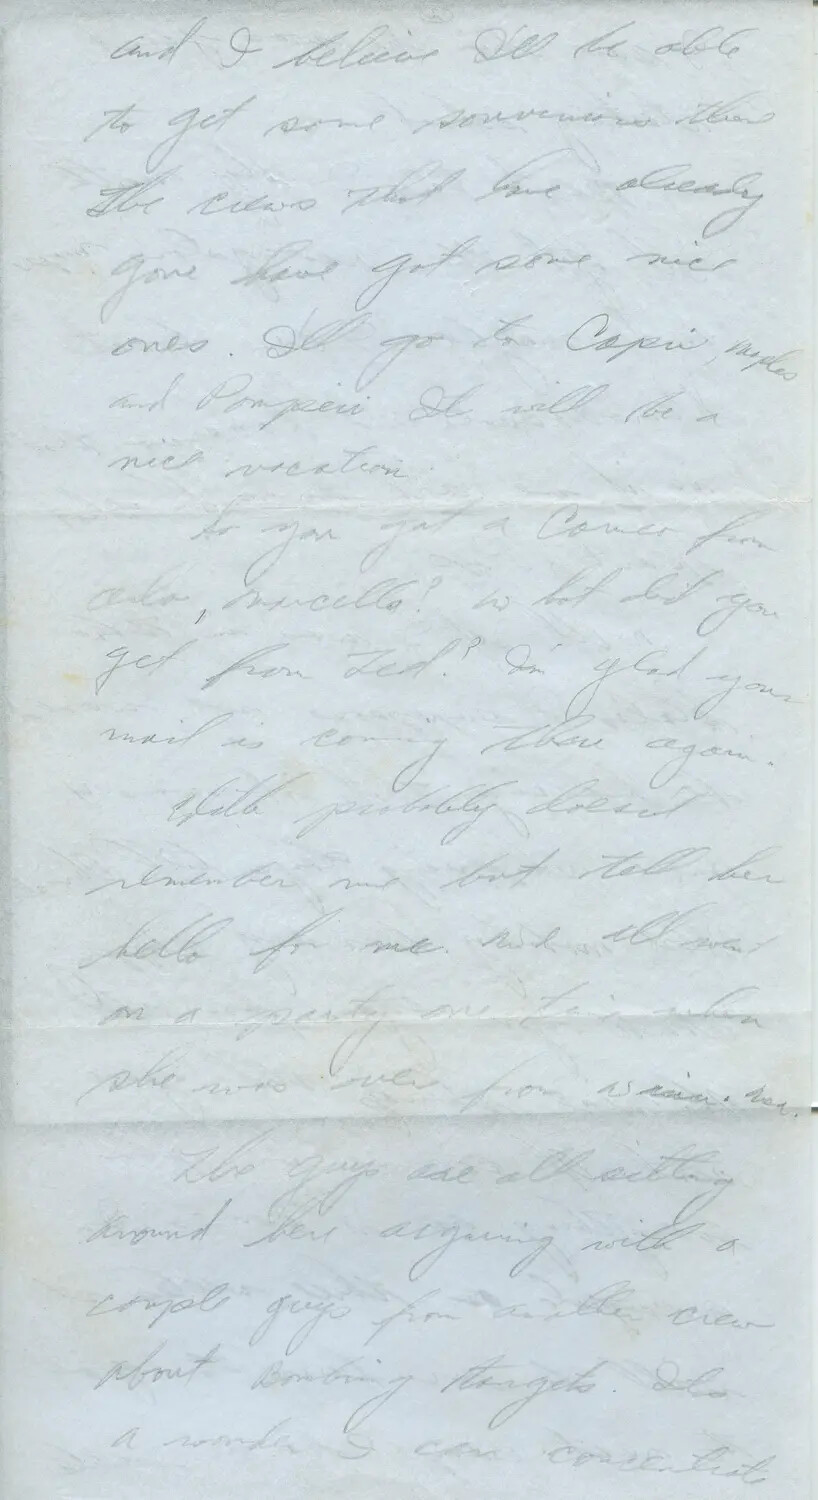 and I believe I'll be able
to get some souveniers there
The crews that have already
gone have got some nice
ones. I'll go to Capri, Naples
and Pompeii It will be a
nice vacation.
So you got a Cameo from
, Marcella? What did you
get from Ted? I'm glad your
mail is coming there again.
probably doesn't
remember me but tell her
hello for me. We all went
on a party one time when
she was over from
The guys are all sitting
around here arguing with a
couple guys from another crew
about Bombing targets. Its
a wonder I can concentrate